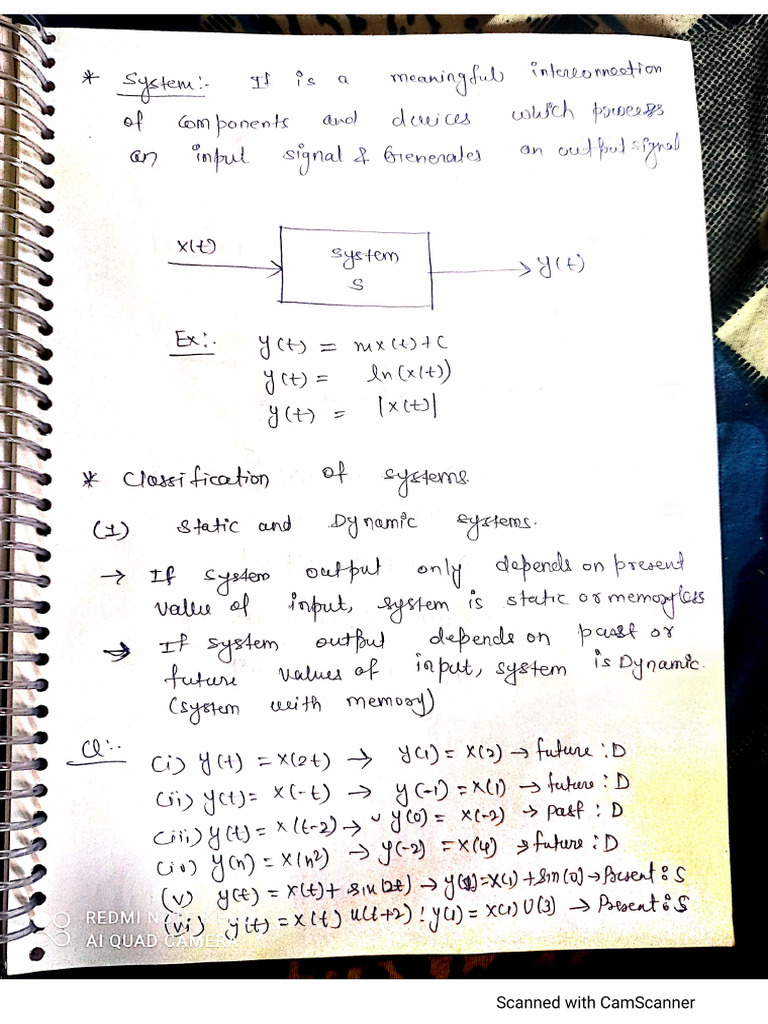 * System:- It is a meaningful interconnection
of components and devices which process
an input signal & Generates an output signal
x(t)
System
S
y(t)
Ex:- y(t) = mx(t)+c
y(t) = ln(x(t))
y(t) = |x(t)|
* Classification of systems.
(1) Static and Dynamic systems.
→ If system output only depends on present
value of input, system is static or memoryless
→ If system output depends on past or
future values of input, system is Dynamic.
(system with memory)
Q:-
(i) y(t) = x(2t) → y(1) = x(2) → future : D
(ii) y(t) = x(-t) → y(-1) = x(1) → future : D
(iii) y(t) = x(t-2) → y(0) = x(-2) → past : D
(iv) y(n) = x(n²) → y(-2) = x(4) → future : D
(v) y(t) = x(t) + sin(2t) → = x(1) + sin(0) → Present : S
(vi) y(t) = x(t) u(t+2) : y(1) = x(1) U(3) → Present : S
REDMI
AI QUAD CAMERA
Scanned with CamScanner